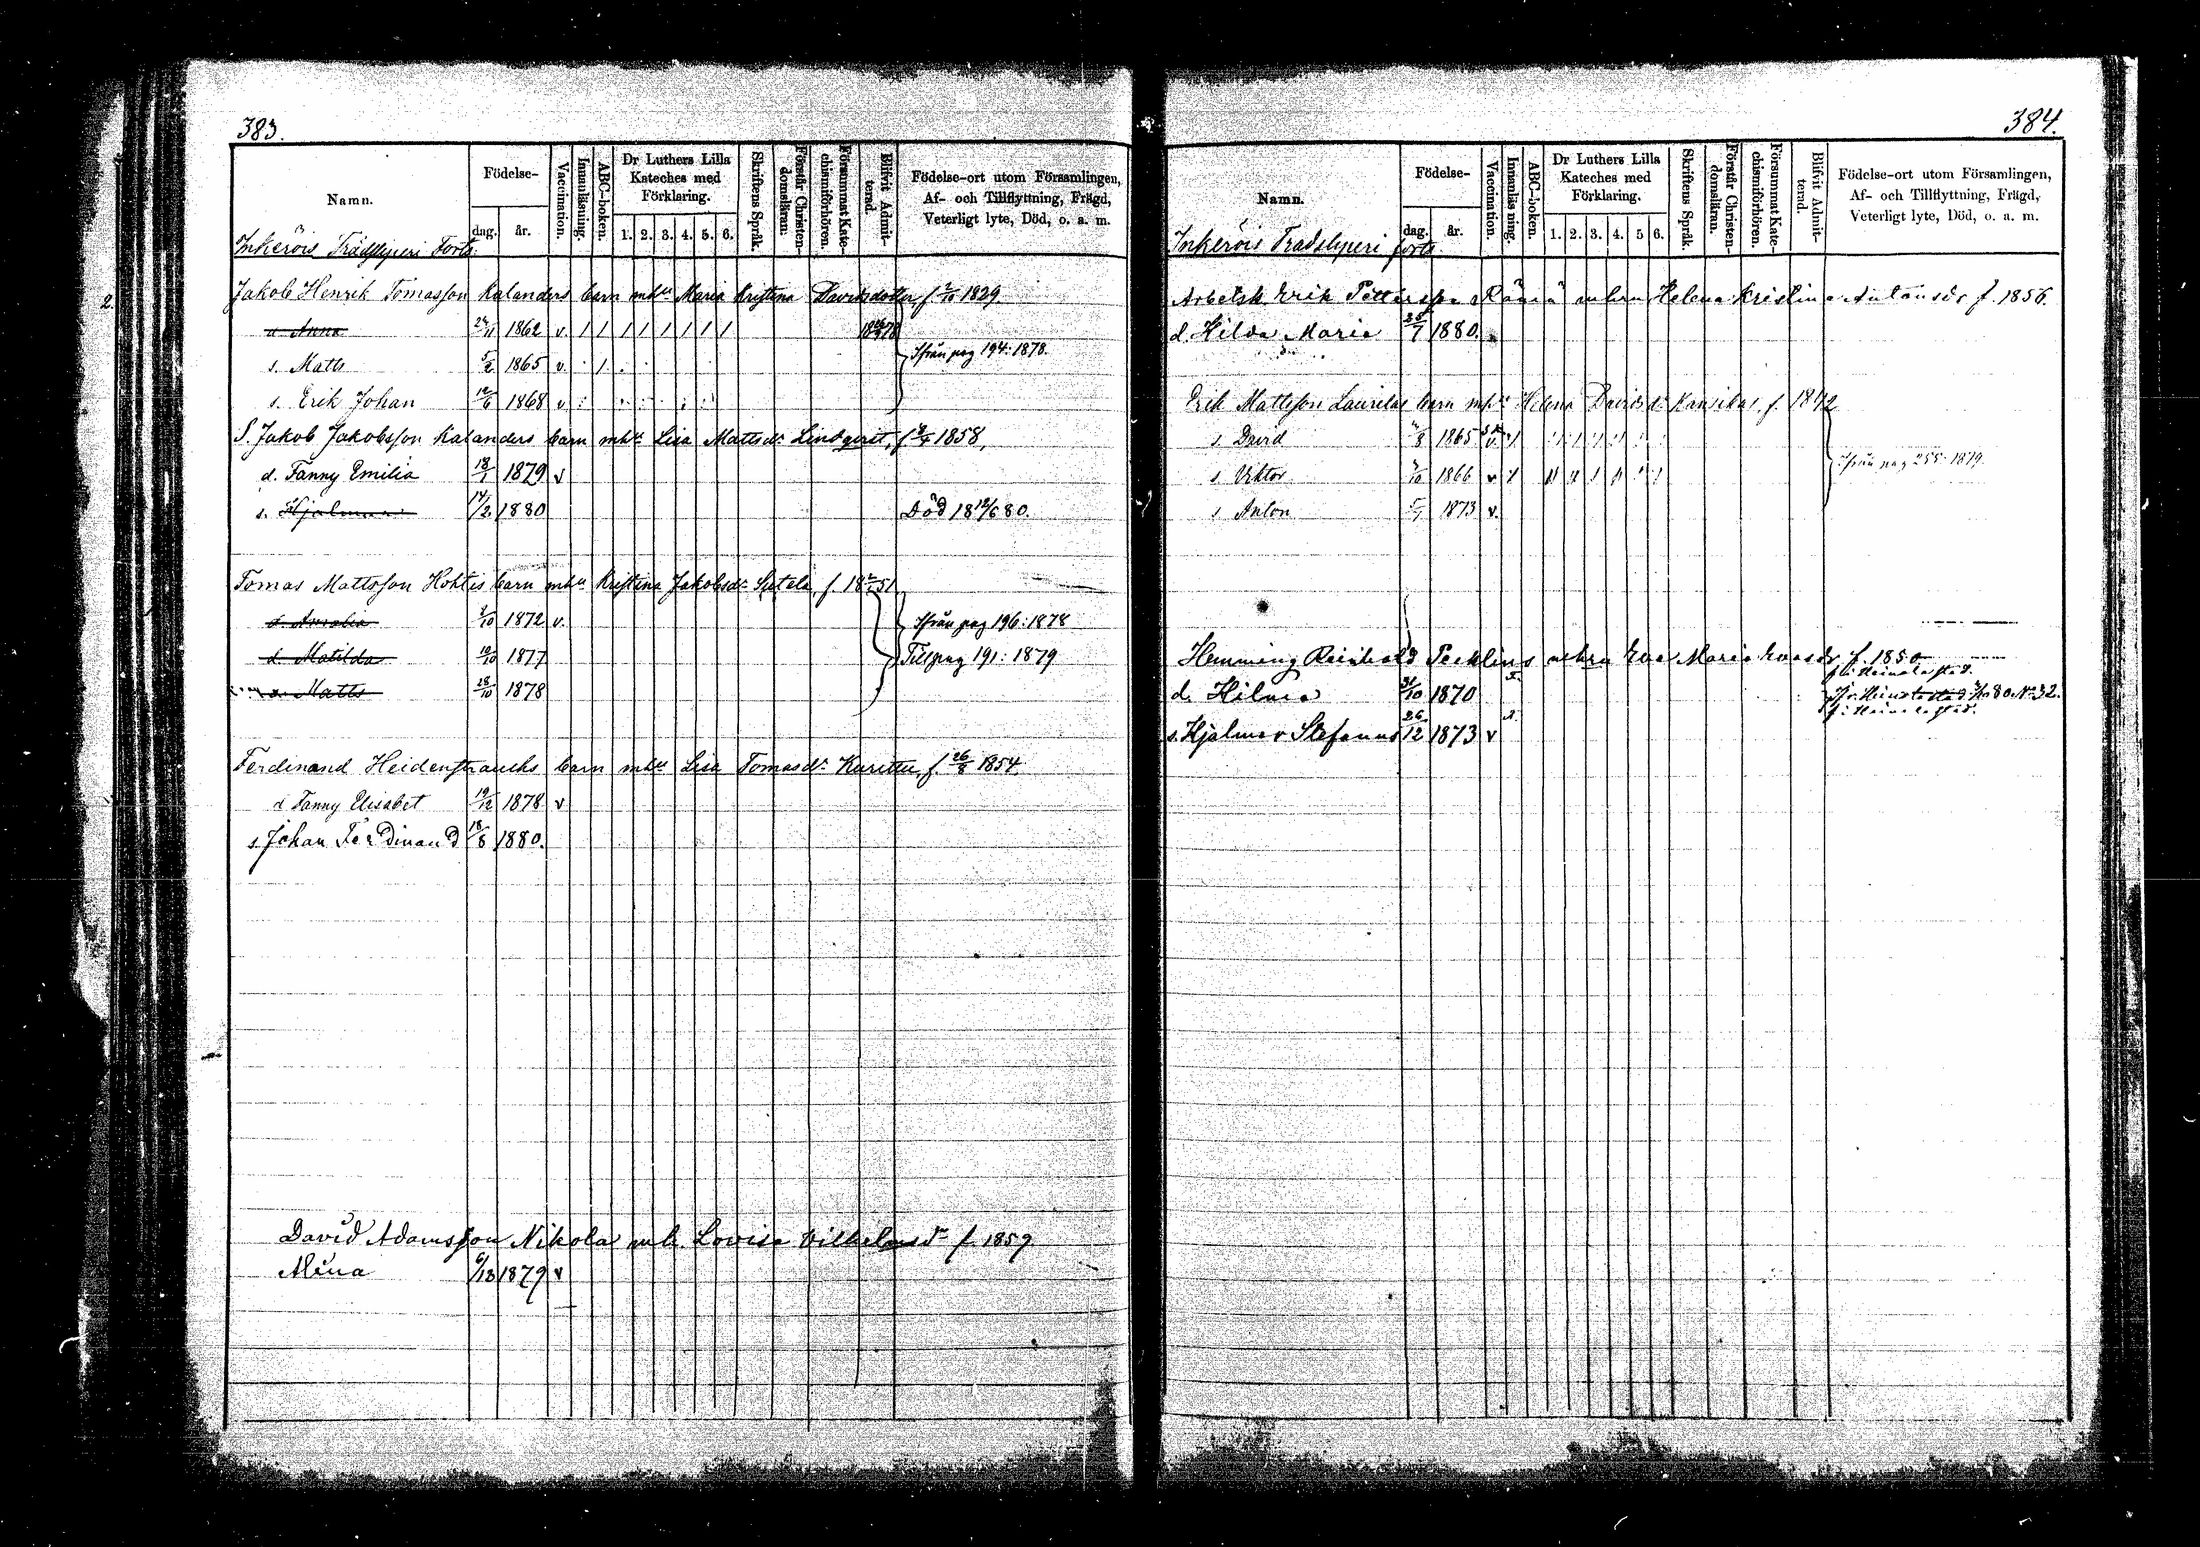 383.
Namn.
Födelse-
dag.
år.
Vaccination.
Innanläsning.
ABC-boken.
Dr Luthers Lilla
Kateches med
Förklaring.
1. 2. 3. 4. 5. 6.
Skriftens Språk.
Förstår Christen-
domsläran.
Försummat Kate-
chismiförhören.
Blifvit Admit-
terad.
Födelse-ort utom Församlingen,
Af- och Tillflyttning, Frägd,
Veterligt lyte, Död, o. a. m.
Inkerois Trädsliperi Forts.
Jakob Henrik Tomasson Kalanders barn mhu Maria Kristina Davidsdotter, f 5/10 1829
2.
d Anna 24/11 1862 v. / / / / / / / /
s. Matts 5/2 1865 v. /
Ifrån pag 194: 1878.
s. Erik Johan 12/6 1868 v
S. Jakob Jakobsson Kalanders barn mhu Lisa Mattsdr Lindqvist, 1858,
d. Fanny Emilia 18/1 1879 v
s. Hjalmar 14/2 1880 Död 18 12/6 80.
Tomas Mattsson Hohtis barn mhu Kristina Jakobsdr Satela, f. 18 51
d. Amalia 2/10 1872 v. Ifrån pag 196: 1878
d. Matilda 10/10 1877 Till pag 191: 1879
s. Matts 28/10 1878
Ferdinand Heidenstrauchs barn mhu Lisa Tomasdr Kurittu, f. 26/8 1854.
d Fanny Elisabet 19/12 1878 v
s. Johan Ferdinand 18/8 1880.
David Adamsson Nikola mh. Lovisa Vilhelmsdr f. 1859
Alina 1879 v
384.
Namn.
Födelse-
dag.
år.
Vaccination.
Innanläsning.
ABC-boken.
Dr Luthers Lilla
Kateches med
Förklaring.
1. 2. 3. 4. 5 6.
Skriftens Språk.
Förstår Christen-
domsläran.
Försummat Kate-
chismiförhören.
Blifvit Admit-
terad.
Födelse-ort utom Församlingen,
Af- och Tillflyttning, Frägd,
Veterligt lyte, Död, o. a. m.
Inkerois Trädsliperi forts.
Arbetsk. Erik Pettersson Rämä mhru Helena Kristina Antonsdr f. 1856.
d. Hilda Maria 25/7 1880.
Erik Mattsson Laurilas barn mhu Helena Davidsdr Kansikas, f. 1842
s. David 1865 v.
s. Viktor 1866 v
Ifrån pag 255: 1879
s Anton 1873 v.
Hemming Reinhold Pecklins mhru Eva Maria Evasdr f. 1850
f. i Heinola stad.
d. Hilma 31/10 1870 Ifr. Heinola stad 80 No 32.
f. i Heinola stad.
s. Hjalmar Stefanus 26/12 1873 v